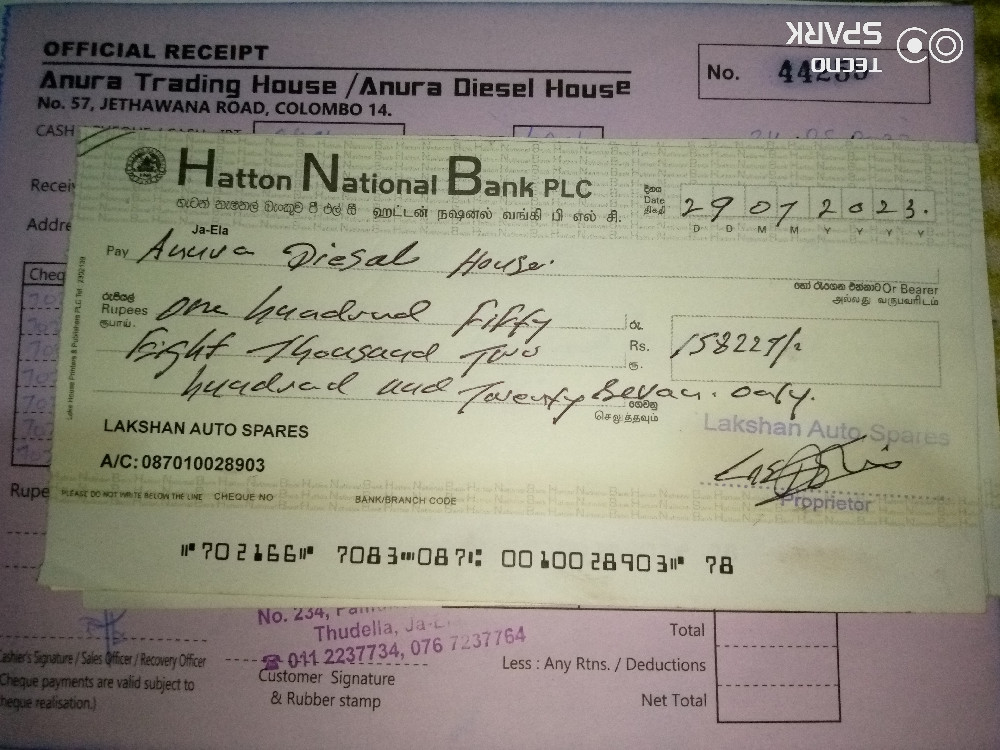 TECNO
SPARK
OFFICIAL RECEIPT
Anura Trading House /Anura Diesel House
No. 57, JETHAWANA ROAD, COLOMBO 14.
No.
CASH
Hatton National Bank PLC
 හැටන් නැෂනල් බැංකුව පී එල් සී ஹட்டன் நஷனல் வங்கி பி எல் சி.
දිනය
Date
திகதி
29 07 2023.
D D M M Y Y Y Y
Ja-Ela
Pay Anura Diesal House.
හෝ රැගෙන එන්නාට Or Bearer
அல்லது வருபவரிடம்
රුපියල්
Rupees
ரூபாய்.
one hundrud fifty
Eight Thousand Two
hundrad and Twenty Sevan. only.
රු.
Rs.
ரூ.
158227/-
ගෙවනු
செலுத்தவும்
LAKSHAN AUTO SPARES
A/C: 087010028903
Lakshan Auto Spares
Proprietor
PLEASE DO NOT WRITE BELOW THE LINE CHEQUE NO BANK/BRANCH CODE
⑈702166⑈ 7083⑉087⑆ 0010028903⑈ 78
No. 234,
Thudella, Ja-E
☎ 011 2237734, 076 7237764
Cashier's Signature / Sales Officer / Recovery Officer
Cheque payments are valid subject to
cheque realisation.)
Customer Signature
& Rubber stamp
Total
Less : Any Rtns. / Deductions
Net Total